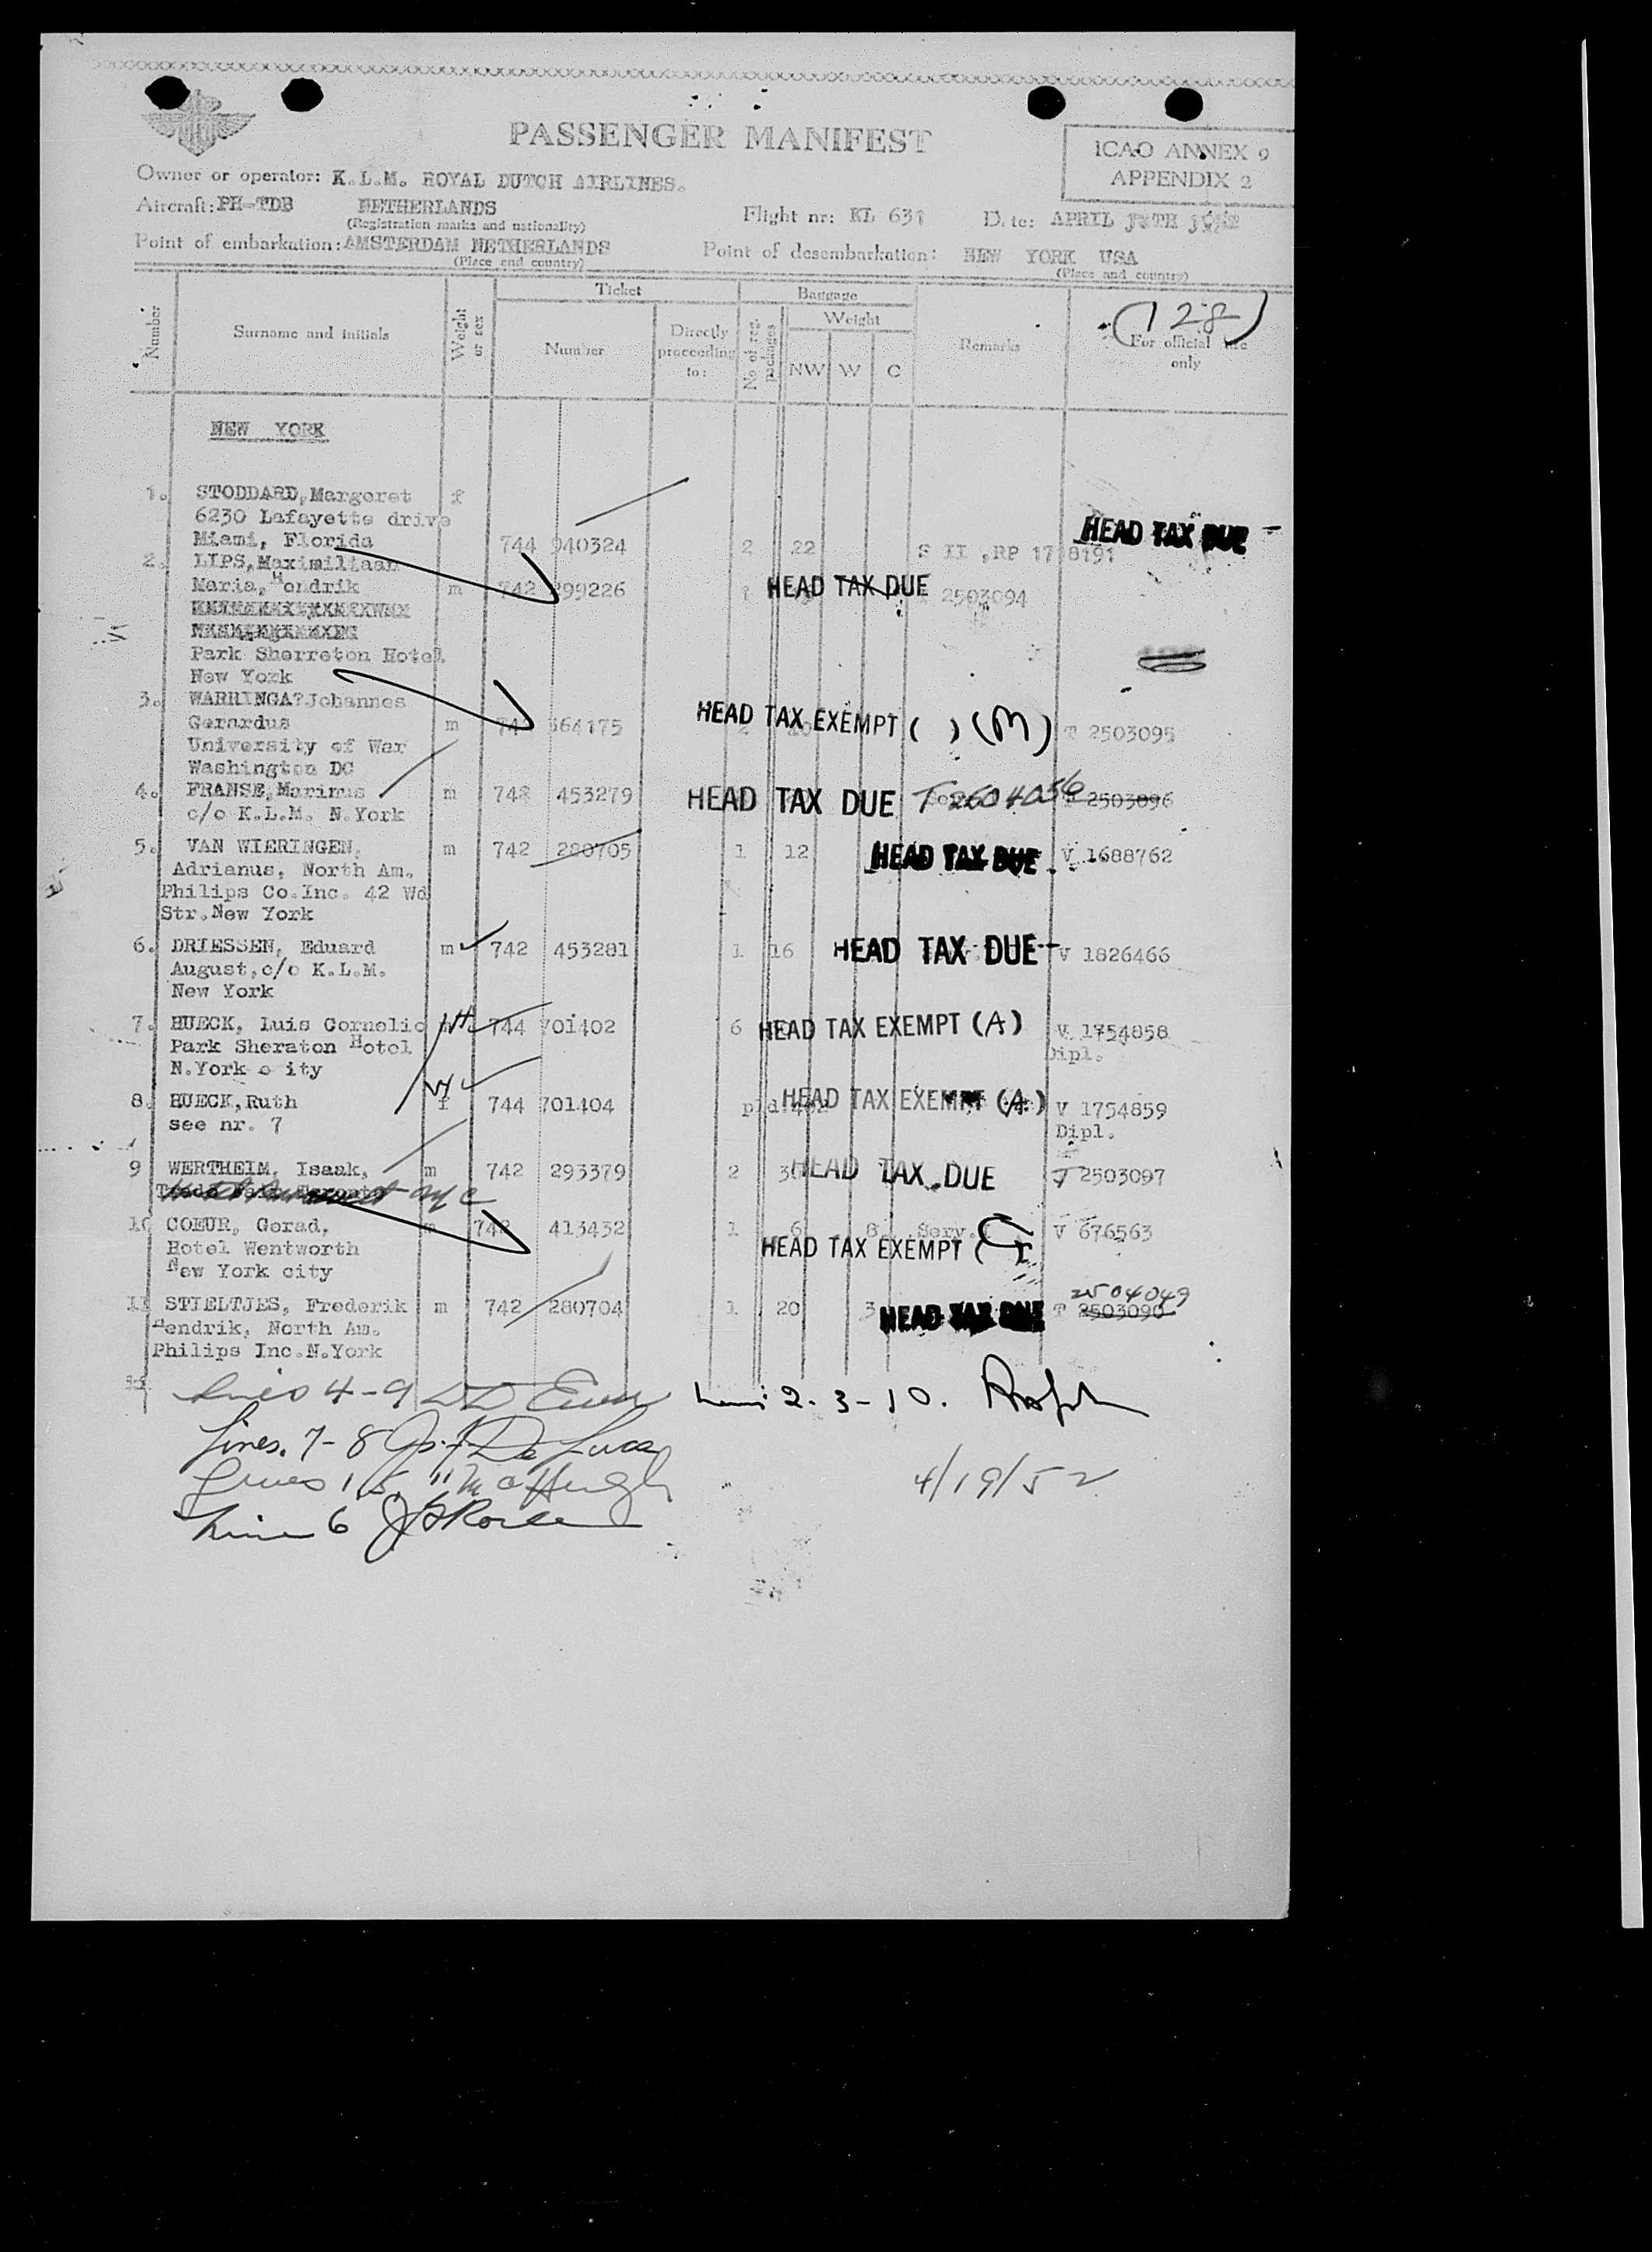 PASSENGER MANIFEST
ICAO ANNEX 9
APPENDIX 2
Owner or operator: K.L.M. ROYAL DUTCH AIRLINES.
Aircraft: PH-TDB NETHERLANDS
(Registration marks and nationality)
Flight nr: KL 631 Date: APRIL
Point of embarkation: AMSTERDAM NETHERLANDS
(Place and country)
Point of desembarkation: NEW YORK USA
(Place and country)
Number
Surname and initials
Weight or sex
Ticket
Number
Directly proceeding to:
Baggage
No of reg. packages
Weight
NW W C
Remarks
(128)
For official use only
NEW YORK
1. STODDARD, Margoret f
6230 Lafayette drive
Miami, Florida 744 940324 2 22 S II ,RP 1718191 HEAD TAX DUE
2. LIPS, Maximiliaan
Maria, Hendrik m 742 299226 1 HEAD TAX DUE 2503094
Park Sherreton Hotel
New York
3. WARRINGA?Johannes
Gerardus m 74 364175 HEAD TAX EXEMPT ( ) (M) T 2503095
University of War
Washington DC
4. FRANSE, Marinus m 742 453279 HEAD TAX DUE T 2604056 T 2503096
c/o K.L.M. N.York
5. VAN WIERINGEN, m 742 280705 1 12 HEAD TAX DUE V 1688762
Adrianus, North Am.
Philips Co.Inc. 42 Wd
Str.New York
6. DRIESSEN, Eduard m 742 453281 1 16 HEAD TAX DUE V 1826466
August,c/o K.L.M.
New York
7. HUECK, Luis Cornelio M 744 701402 6 HEAD TAX EXEMPT (A) V 1754858
Park Sheraton Hotel Dipl.
N.York c ity
8. HUECK,Ruth f 744 701404 HEAD TAX EXEMPT (A) V 1754859
see nr. 7 Dipl.
9 WERTHEIM, Isaak, m 742 293379 2 30 HEAD TAX DUE T 2503097
NYC
10 COEUR, Gerad, m 742 413432 1 6 8 Serv. V 676563
Hotel Wentworth HEAD TAX EXEMPT (
New York city
2504049
11 STIELTJES, Frederik m 742 280704 1 20 3 HEAD TAX DUE T 2503090
Hendrik, North Am.
Philips Inc.N.York
Lines 4-9
Lines 2-3-10. Ralph
Lines. 7-8 Jos. F De Luca
Lines 1, 5, 11 McHugh
4/19/52
Line 6